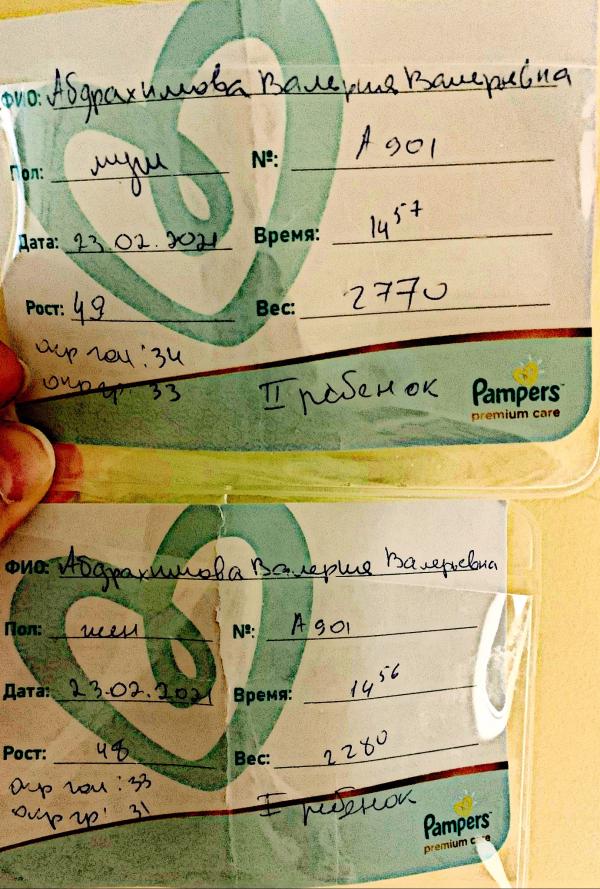 ФИО: Абдрахимова Валерия Валерьевна
Пол: муж №: А 901
Дата: 23.02.2021 Время: 14 57
Рост: 49 Вес: 2770
окр гол: 34
окр гр: 33 II ребенок
Pampers
premium care
ФИО: Абдрахимова Валерия Валерьевна
Пол: жен №: А 901
Дата: 23.02.2021 Время: 14 56
Рост: 48 Вес: 2280
окр гол: 33
окр гр: 31 I ребенок
Pampers
premium care